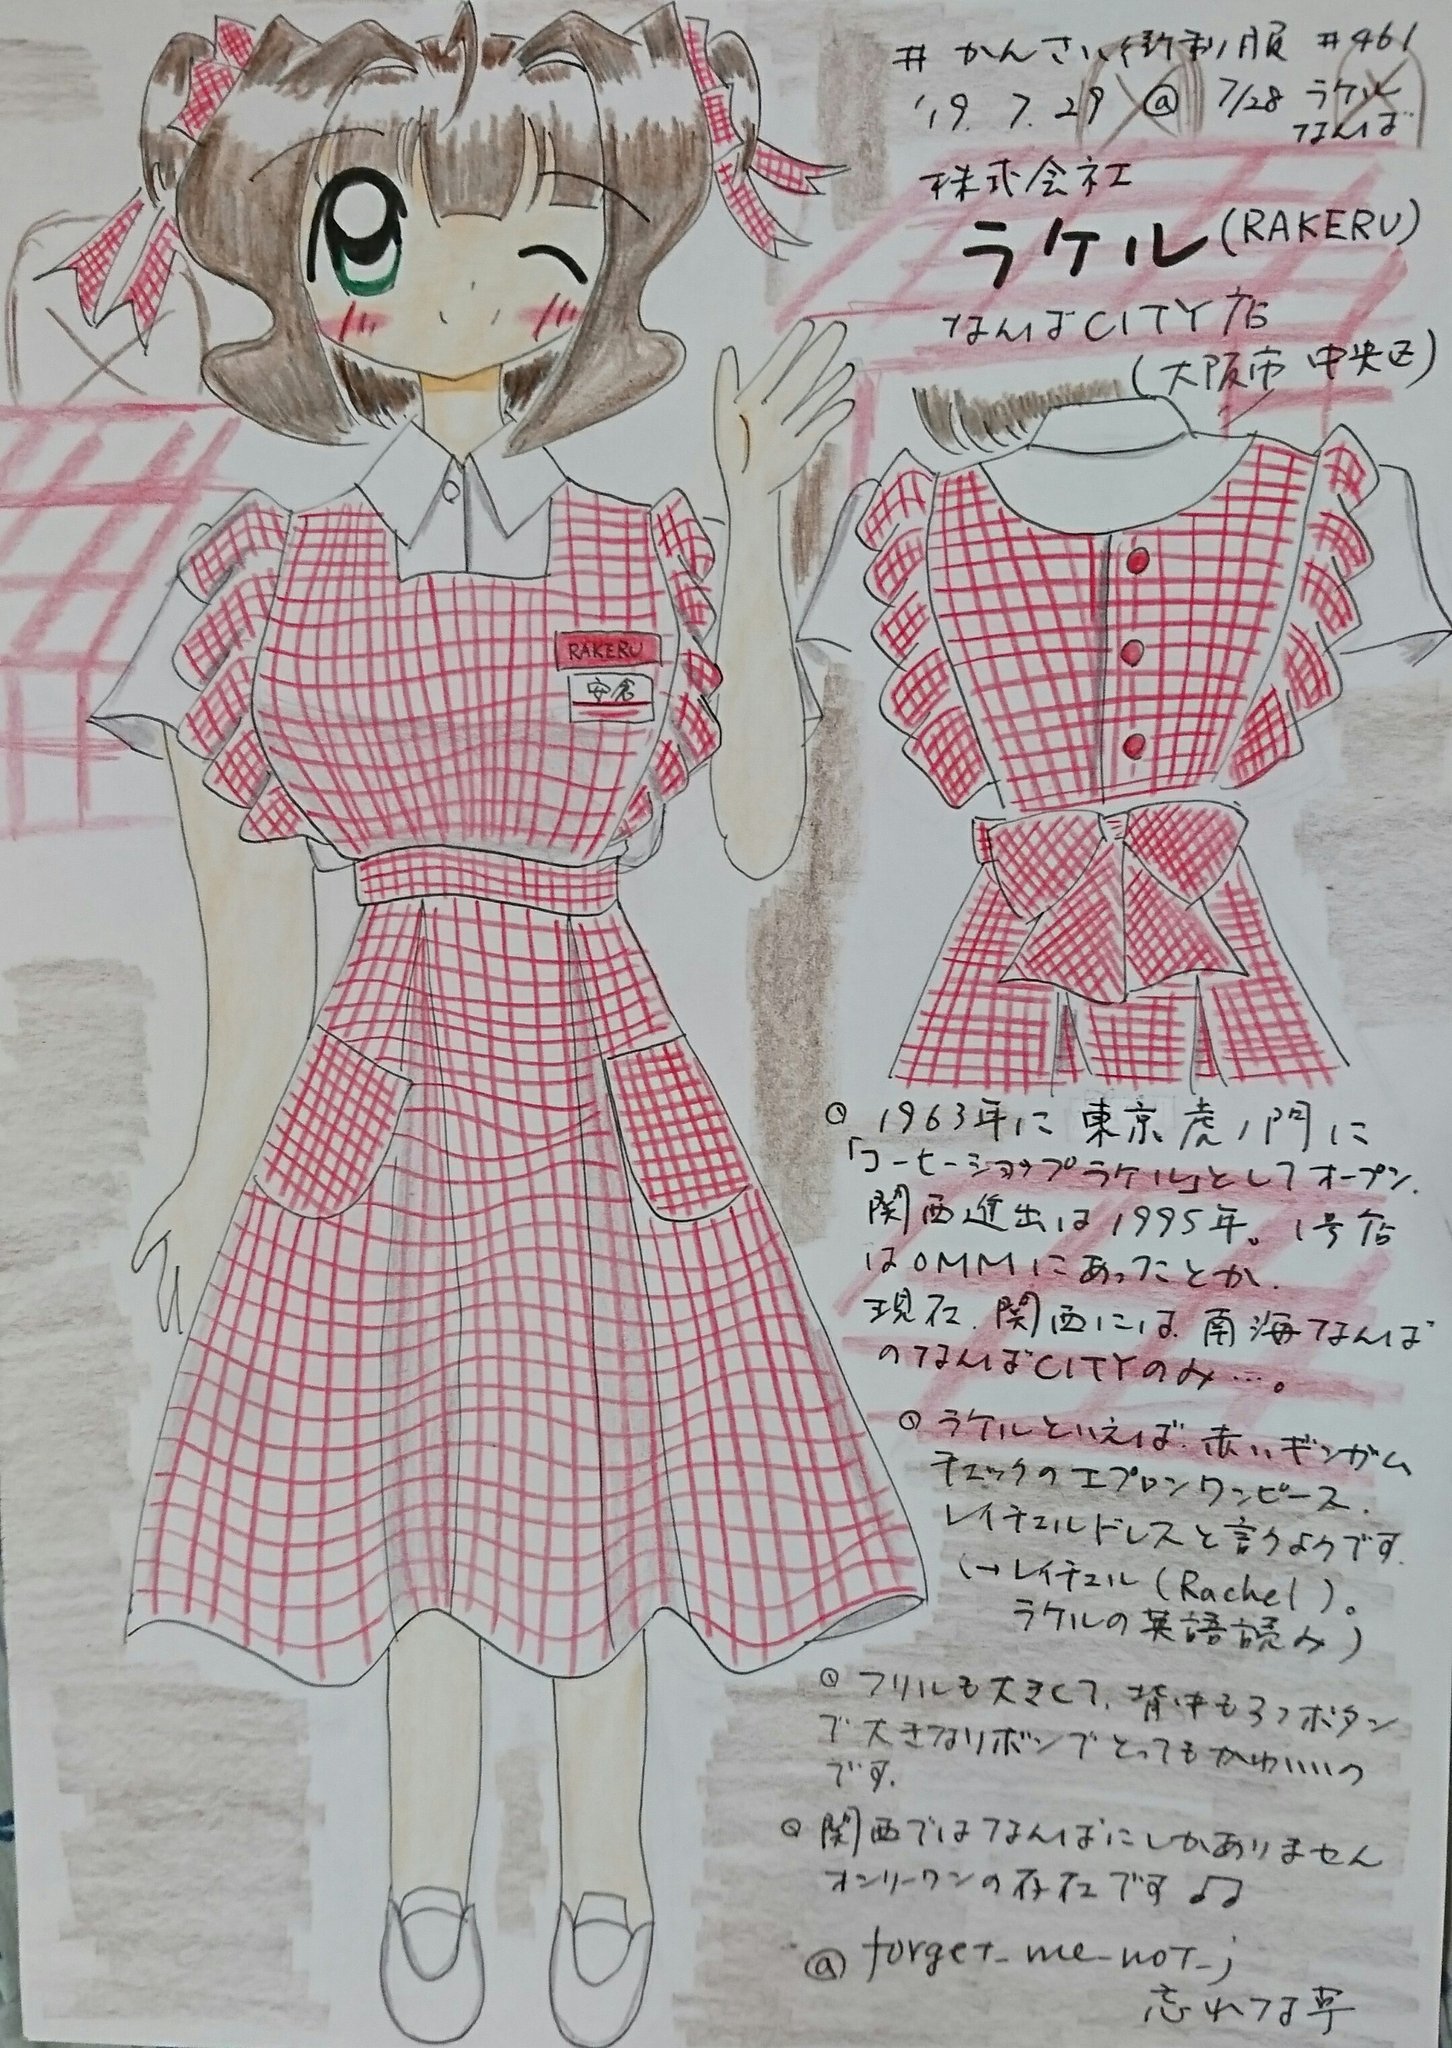 #かんさい街制服 #461
'19.7.29 @ 7/28 ラケル
なんば
株式会社
ラケル(RAKERU)
なんばCITY店
(大阪市中央区)
RAKERU
安倉
○1963年に東京虎ノ門に
「コーヒーショップラケル」としてオープン.
関西進出は1995年。1号店
はOMMにあったことか.
現在、関西には、南海なんば
のなんばCITYのみ…。
○ラケルといえば、赤いギンガム
チェックのエプロンワンピース.
レイチェルドレスと言うようです.
(→レイチェル(Rachel)。
ラケルの英語読み)
○フリルも大きくて、背中も3つボタン
で大きなリボンでとってもかわいいの
です.
○関西ではなんばにしかありません
オンリーワンの存在です♫
@forget_me_not_j
忘れな草